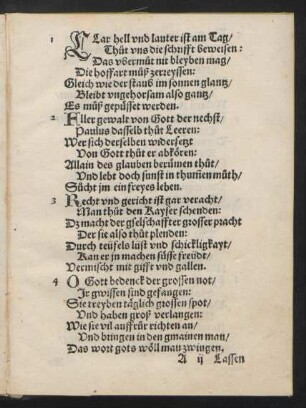 1 CLar hell vnd lauter ist am Tag/
Thůt vns die schrifft beweisen:
Das vbermůt nit bleyben mag/
Die hoffart můß zerreyssen:
Gleich wie der staub im sonnen glantz/
Bleibt vngehorsam also gantz/
Es můß gepüsset werden.
2 Aller gewalt von Gott der nechst/
Paulus dasselb thůt Leeren:
Wer sich derselben widersetzt
Von Gott thůt er abkören:
Allain des glauben berümen thůt/
Vnd lebt doch sunst in thumen můth/
Sůcht jm ein freyes leben.
3 Recht vnd gericht ist gar veracht/
Man thůt den Kayser schenden:
Dz macht der gselschaffter grosser pracht
Der sie also thůt plenden:
Durch teüfels lust vnd schickligkayt/
Kan er jn machen süsse freüdt/
Vermischt mit gifft vnd gallen.
4 O Gott bedenck der grossen not/
Jr gwissen sind gefangen:
Sie treyben täglich grossen spot/
Vnd haben groß verlangen:
Wie sie vil auffrůr richten an/
Vnd bringen in den gmainen man/
Das wort gots wöll man zwingen.
A ij Lassen